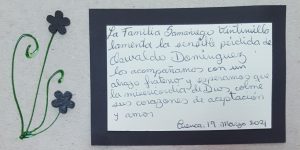 La Familia Samaniego Tintinillo
lamenta la sensible pérdida de
Oswaldo Domínguez
los acompañamos con un
abrazo fraterno y esperamos que
la misericordia de Dios colme
sus corazones de aceptación
y amor
Cuenca, 19 Marzo 2021